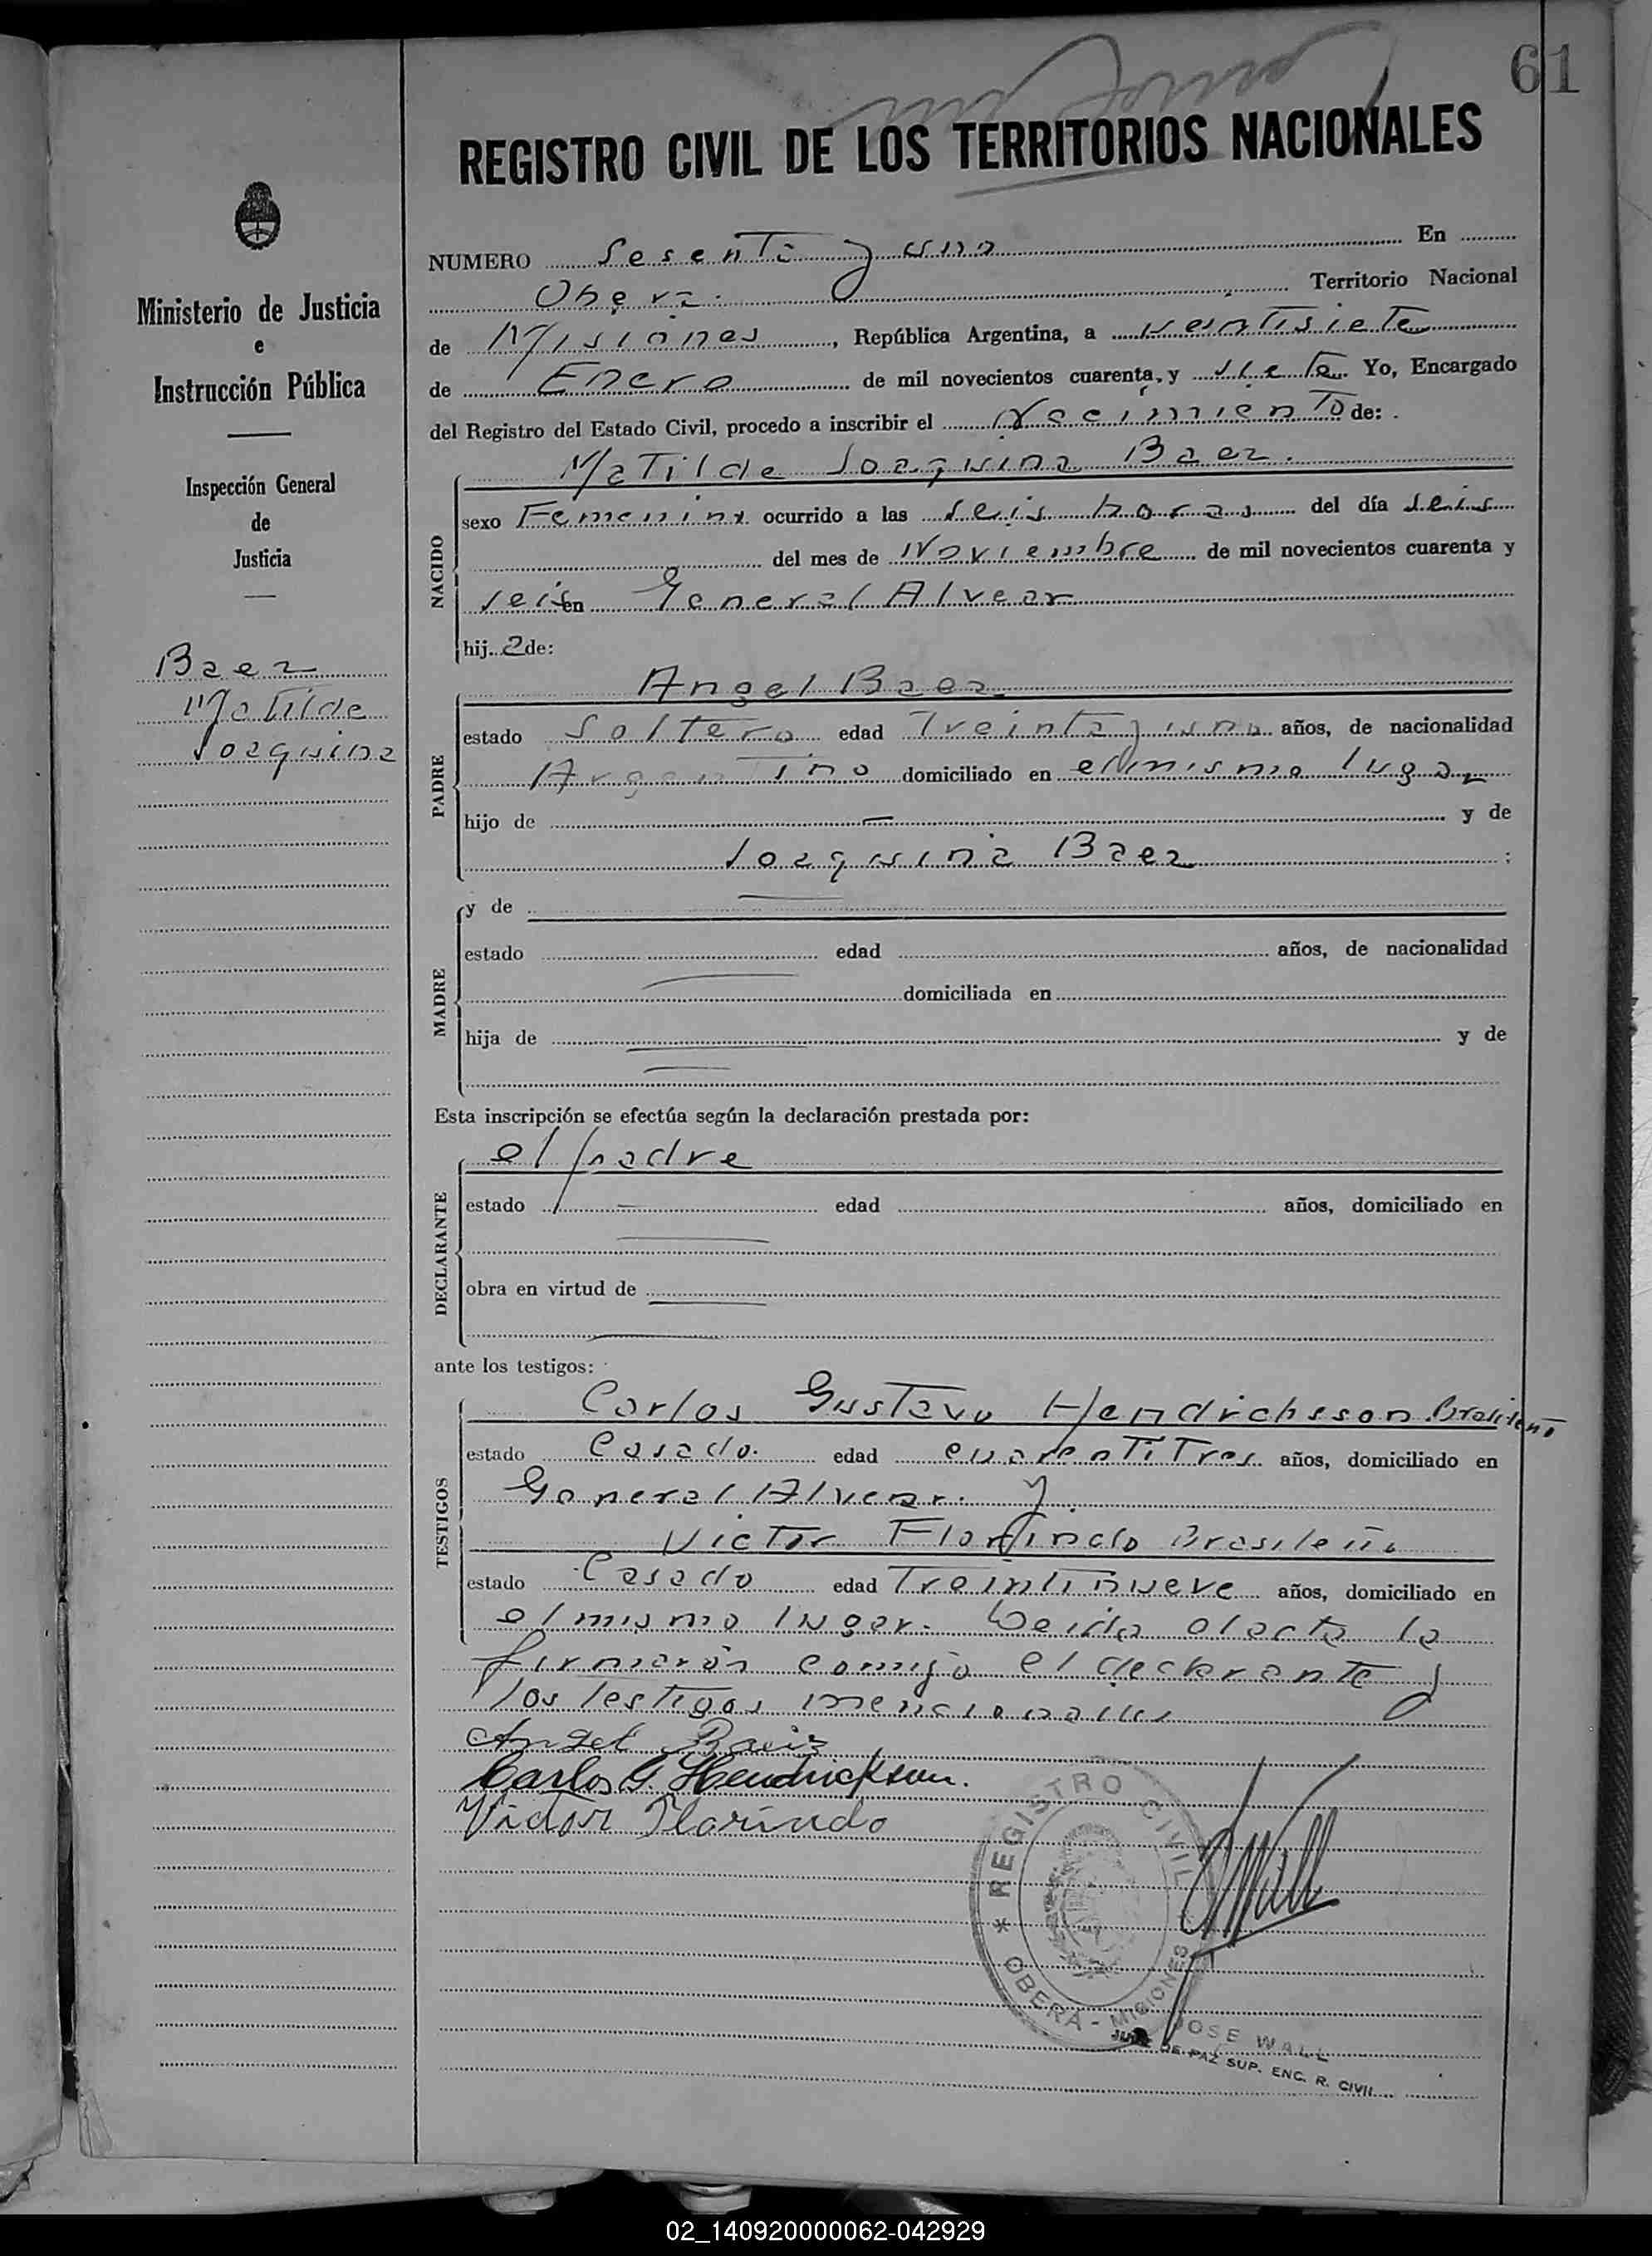 61
REGISTRO CIVIL DE LOS TERRITORIOS NACIONALES
NUMERO Sesenti y uno En
Obera. Territorio Nacional
de Misiones, República Argentina, a veintisiete
de Enero de mil novecientos cuarenta, y siete Yo, Encargado
del Registro del Estado Civil, procedo a inscribir el Nacimiento de:
Matilde Joaquina Baez.
NACIDO
sexo Femenino ocurrido a las seis horas del día seis
del mes de Noviembre de mil novecientos cuarenta y
seis en General Alvear
hija de:
Angel Baez
PADRE
estado Soltero edad Treinta y uno años, de nacionalidad
Argentino domiciliado en el mismo lugar
hijo de — y de
Joaquina Baez ;
MADRE
y de
estado edad años, de nacionalidad
domiciliada en
hija de y de
Esta inscripción se efectúa según la declaración prestada por:
el padre
DECLARANTE
estado edad años, domiciliado en
obra en virtud de
ante los testigos:
Carlos Gustavo Hendrichsson Brasileño
TESTIGOS
estado Casado. edad cuarentitres años, domiciliado en
General Alvear. y
Victor Florindo Brasileño
estado Casado edad Treintinueve años, domiciliado en
el mismo lugar. Leida el acta la
firmaron comigo el declarante y
los testigos mencionados
Angel Baez
Carlos G. Hendrickson.
Victor Florindo
REGISTRO CIVIL
* OBERA - MISIONES
JOSE WALL
JUEZ DE PAZ SUP. ENC. R. CIVIL
Ministerio de Justicia
e
Instrucción Pública
Inspección General
de
Justicia
Baez
Matilde
Joaquina
02_140920000062-042929